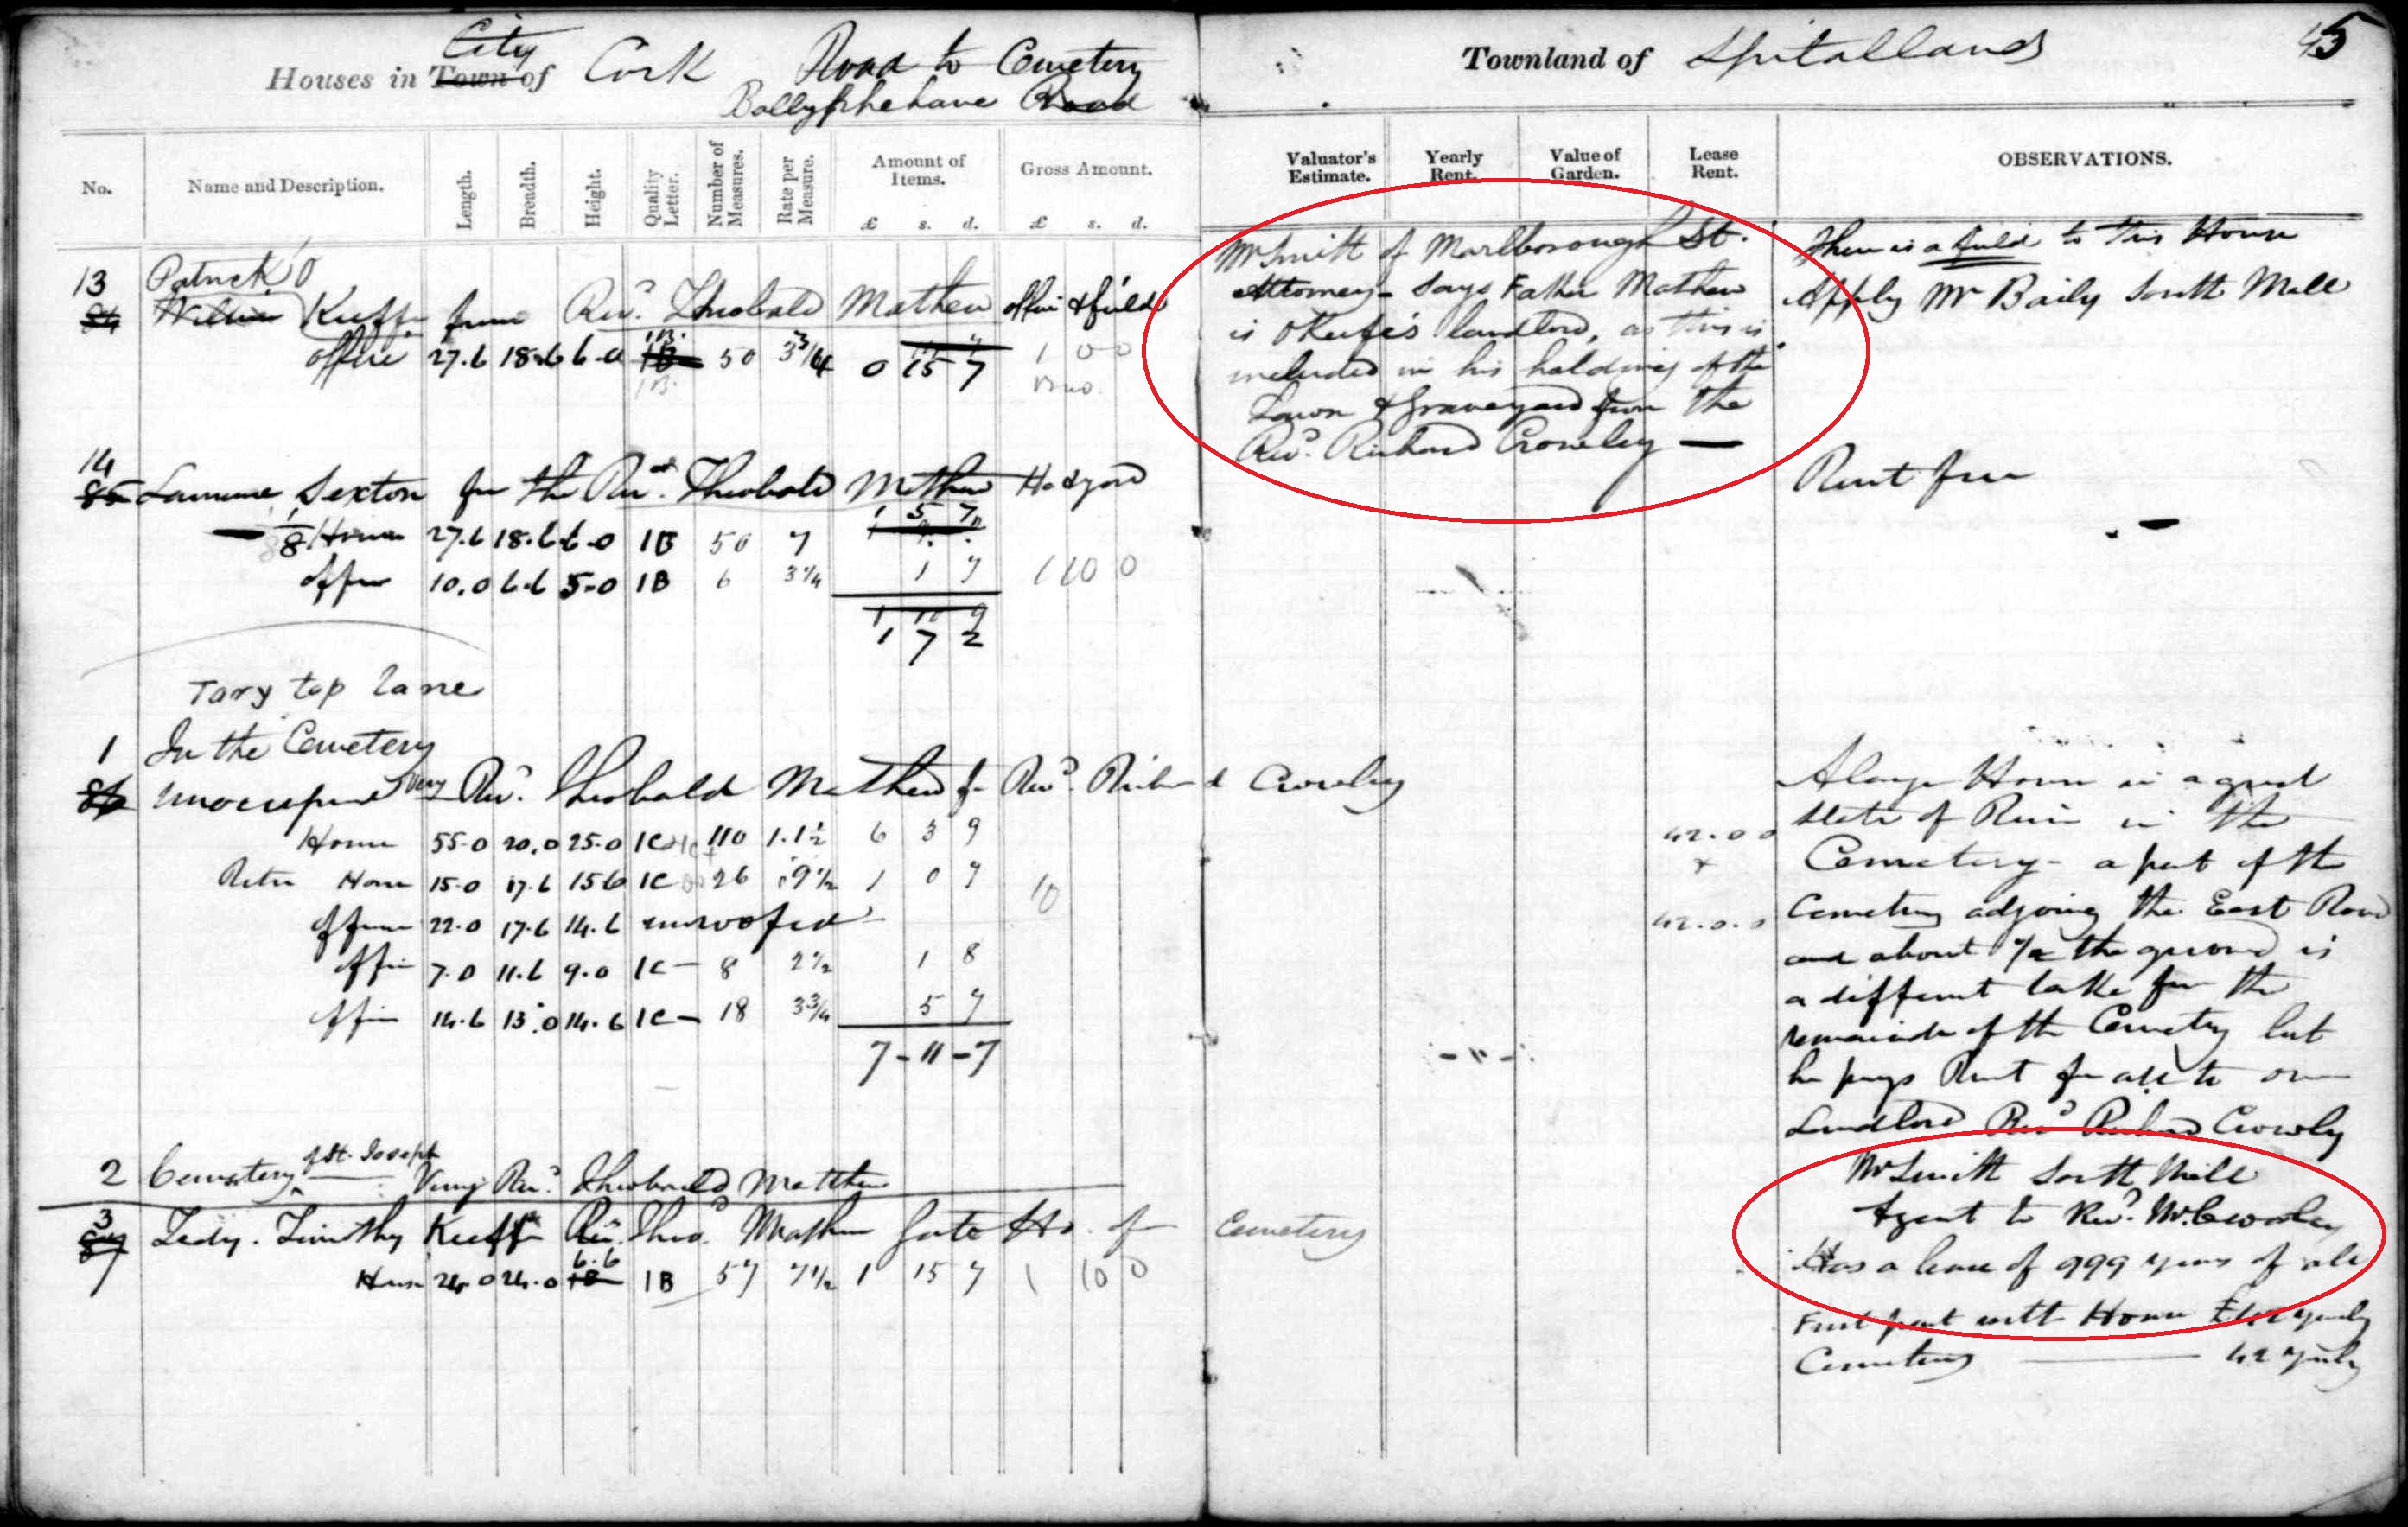 Houses in Town of City Cork Road to Cemetery
Ballyphehane Road
Townland of Spitallands 45
No. Name and Description. Length. Breadth. Height. Quality Letter. Number of Measures. Rate per Measure. Amount of Items. Gross Amount.
£ s. d. £ s. d.
Valuator's Estimate. Yearly Rent. Value of Garden. Lease Rent. OBSERVATIONS.
13 Patrick O
William Keeffe from Revd. Theobald Mathew office & field
office 27.6 18.6 6-0 1B 50 3 3/4 0 15 7 1 0 0
Mr Smith of Marlborough St.
Attorney - says Father Mathew
is OKeefe's landlord, as this is
included in his holding of the
Lawn & Graveyard from the
Revd. Richard Crowley —
There is a field to this House
Apply Mr Baily South Mall
14
85 Laurence Sexton from the Revd. Theobald Mathew Ho & yard
House 27.6 18.6 6-0 1B 50 7 1 5 7
office 10.0 6.6 5-0 1B 6 3 1/4 1 7 1 10 0
1 7 2
Rent free
Tory top Lane
1 In the Cemetery
86 unoccupied Very Revd. Theobald Mathew fr Revd. Richard Crowley
House 55-0 20.0 25-0 1C 110 1.1 1/2 6 3 9 42.0 0
Retn House 15-0 17.6 15 6 1C 26 9 1/2 1 0 7 10
offices 22.0 17.6 14.6 unroofed 42.0.0
office 7.0 11.6 9.0 1C- 8 2 1/2 1 8
office 14.6 13.0 14.6 1C- 18 3 3/4 5 7
7-11-7
A large House in a great
state of Ruin in the
Cemetery - a part of the
Cemetery adjoining the East Road
and about 1/2 the ground is
a different take from the
remainder of the Cemetery but
he pays Rent for all to one
Landlord Revd Richard Crowly
2 Cemetery of St. Joseph Very Revd. Theobald Matthew
3
87 Tedy. Timothy Keeffe Revd. Theo. Mathew Gate Ho. of Cemetery
6.6
House 24.0 24.0 1B 57 7 1/2 1 15 7 1 10 0
Mr Smith South Mall
Agent to Revd. Mr. Crowley
Has a lease of 999 years of all
First part with House £42 yearly
Cemetery — 42 yearly